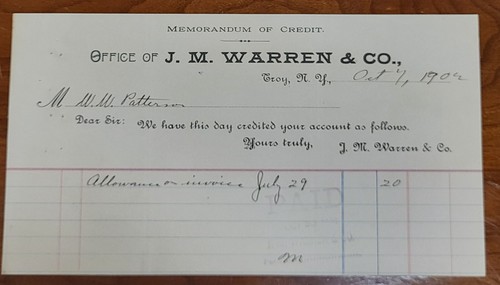 MEMORANDUM OF CREDIT.
OFFICE OF J. M. WARREN & CO.,
Troy, N. Y., Oct 7, 1902
M W. W. Patterson
Dear Sir: We have this day credited your account as follows.
Yours truly, J. M. Warren & Co.
Allowance on invoice July 29 20
PAID
M